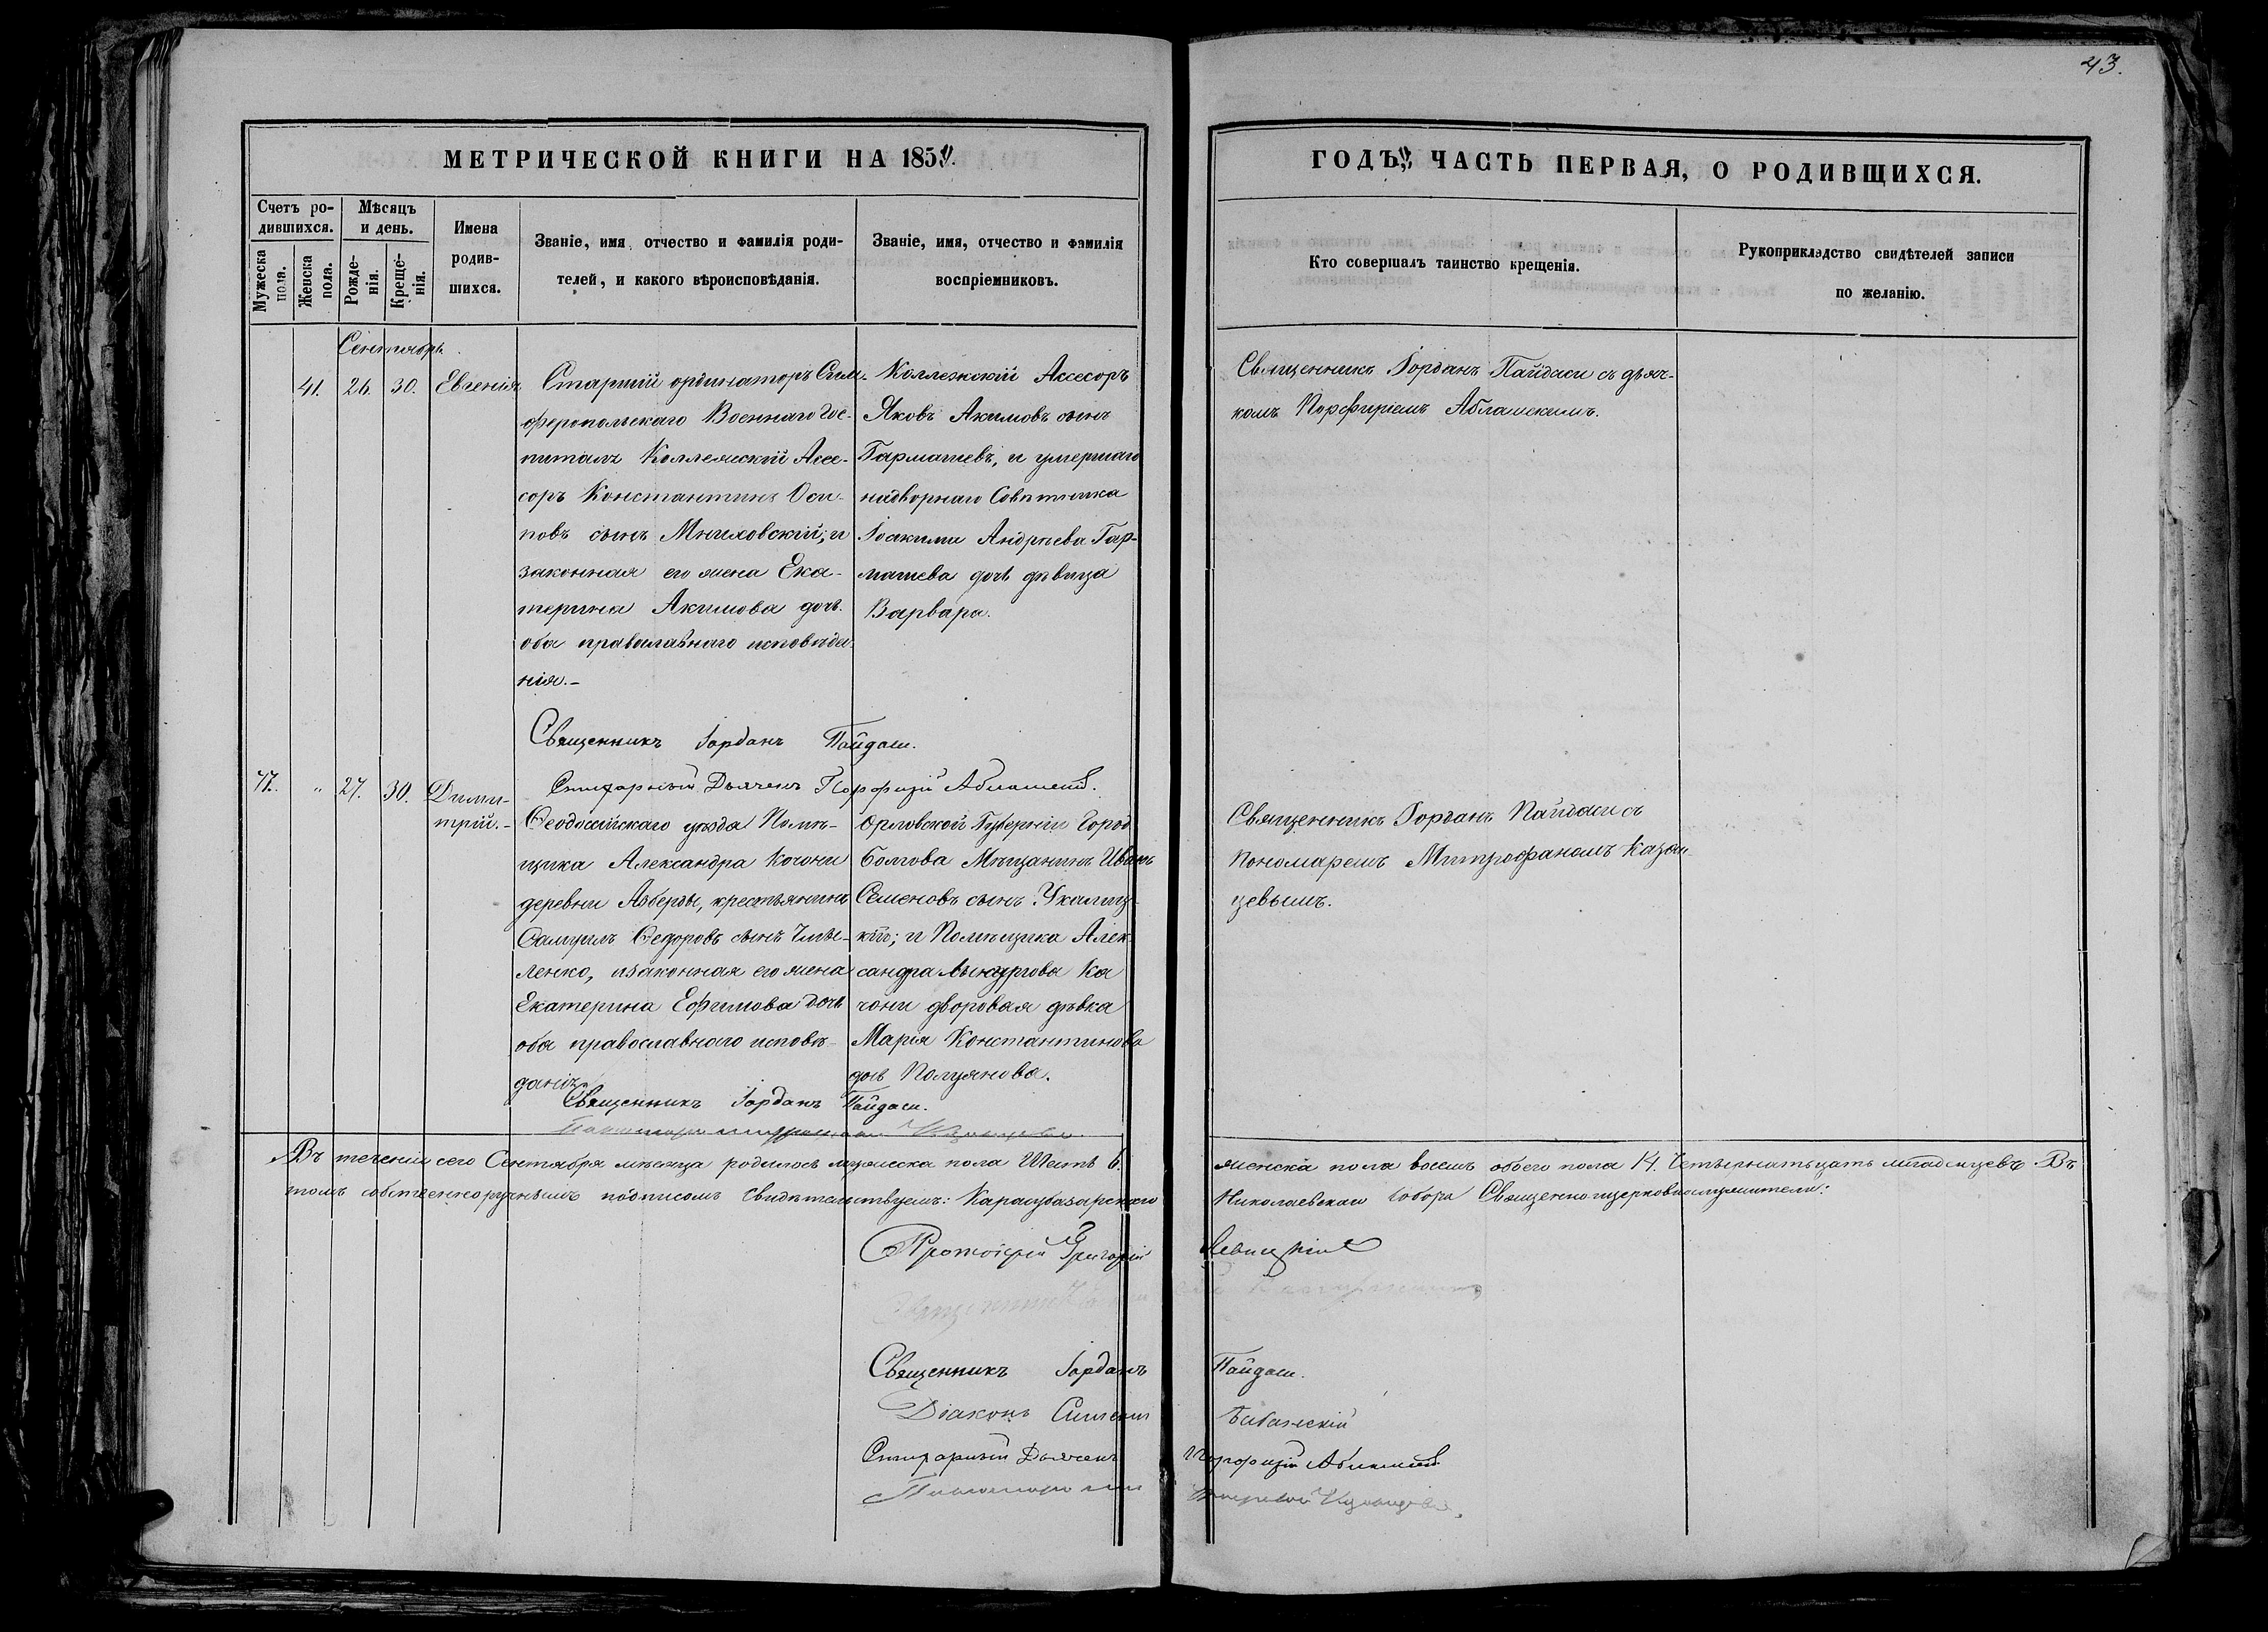 43.
МЕТРИЧЕСКОЙ КНИГИ НА 185
ГОДЪ, ЧАСТЬ ПЕРВАЯ, О РОДИВЩИХСЯ.
Счетъ ро-
дившихся.
Мужеска
пола.
Женска
пола.
Мѣсяцъ
и день.
Рожде-
нія.
Креще-
нія.
Имена
родив-
шихся.
Званіе, имя, отчество и фамилія роди-
телей, и какого вѣроисповѣданія.
Званіе, имя, отчество и фамилія
воспріемниковъ.
Кто совершалъ таинство крещенія.
Рукоприкладство свидѣтелей записи
по желанію.
Сентябрь.
41. 26. 30. Евгенія
Старшій ординаторъ Сим-
феропольскаго Военнаго Гос-
питаля Коллежскій Ассе-
соръ Константинъ Оси-
повъ сынъ и
законная его жена Ека-
терина Акимова дочь.
оба православнаго исповѣда-
нія.-
Коллежскій Ассесоръ
Яковъ Акимовъ сынъ
Гармашевъ, и умершаго
надворнаго Совѣтника
Іоакима Андреева Гар-
машева дочь дѣвица
Варвара.
Священникъ Іорданъ Пайдаси съ дьяч-
комъ Порфиріемъ
Священникъ Іорданъ Пайдаси.
Стихарный Дьячекъ Порфирій
" 27. 30. Дими-
трій.-
Ѳеодосійскаго уѣзда Помѣ-
щика Александра Кочони
деревни крестьянинъ
Самуилъ Ѳедоровъ сынъ
ленко, и законная его жена
Екатерина Ефимова дочь
оба православнаго исповѣ-
данія.
Орловской Губерніи Город
Болхова Мѣщанинъ Иванъ
Семеновъ сынъ
кій; и Помѣщика Алек-
сандра Ликургова Ка
чони дворовая дѣвка
Марія Константинова
дочь Полуянова.
Священникъ Іорданъ Пайдаси съ
Пономаремъ Митрофаномъ Казан-
цевымъ.
Священникъ Іорданъ Пайдаси.
Въ теченіи сего Сентября мѣсяца родилось мужеска пола Шесть 6.
женска пола восемь обоего пола 14. Четырнатьцать младенцевъ Въ
томъ собственноручнымъ подписомъ Свидѣтельствуемъ: Карасубазарскаго
Николаевскаго Собора Священноицерковнослужители:
Протоіерей Григорій
Священникъ Іорданъ Пайдаси.
Діаконъ Симеонъ
Стихарный Дьячекъ Порфирій